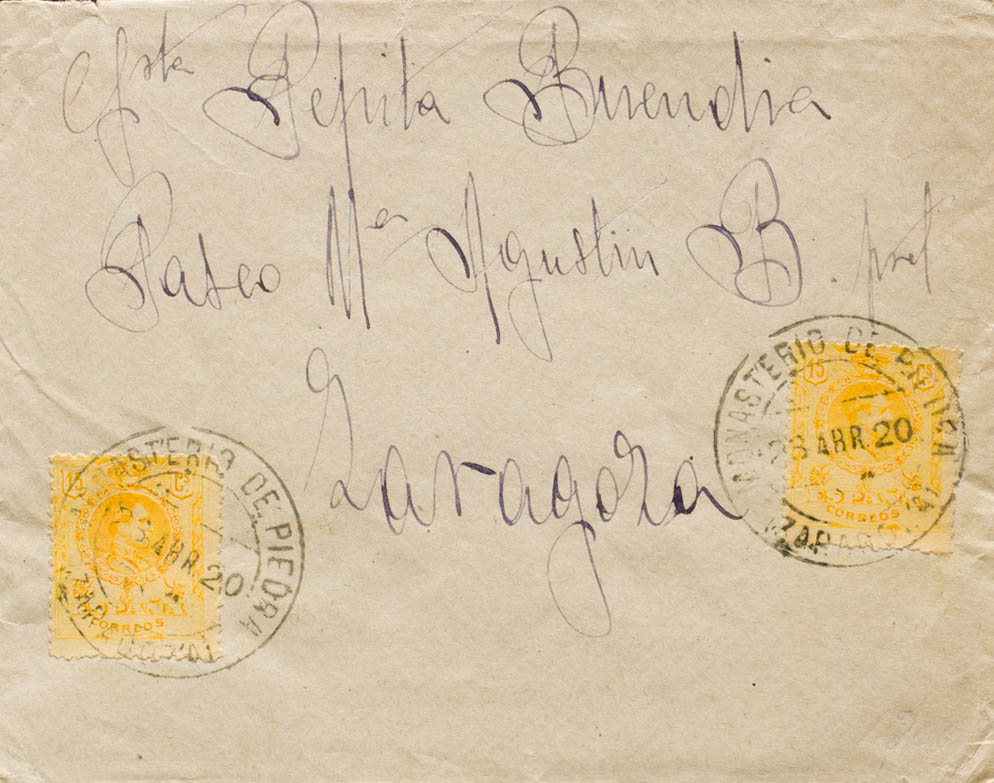 Sta Pepita Buendia
Paseo Ma Agustin B. pral
Zaragoza
MONASTERIO DE PIEDRA
23 ABR. 20
ZARAGOZA
15 Cs
CORREOS
MONASTERIO DE PIEDRA
23 ABR. 20
ZARAGOZA
15 Cs
ESPAÑA
CORREOS